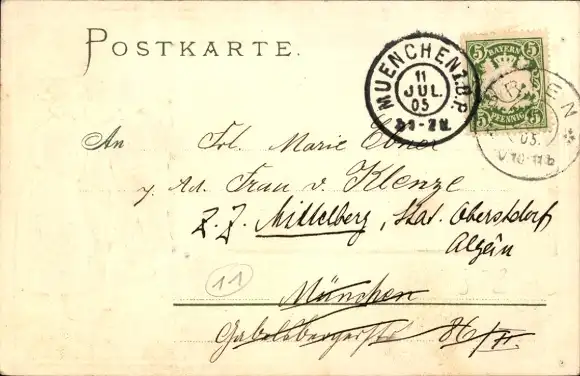 POSTKARTE.
MUENCHEN I.B.P.
11
JUL.
05
5 BAYERN 5
5 PFENNIG 5
EN
05.
V 10-11
An Frl. Marie Ebner
p. Ad. Frau v. Klenze
z. Z. Mittelberg, Stat. Oberstdorf
Algäu
11
München
Gabelsbergerstr. 86/II.